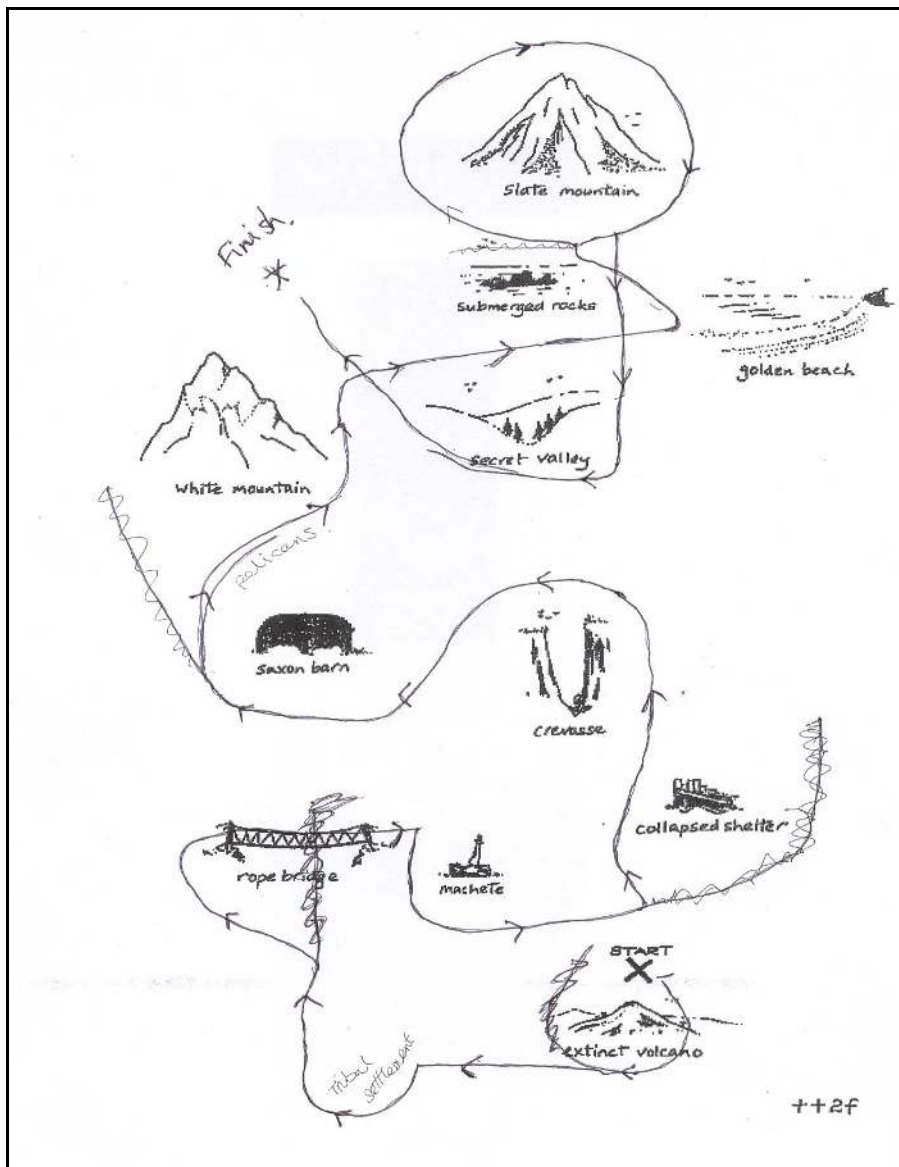 slate mountain
Finish.
submerged rocks
golden beach
secret valley
white mountain
pelicans.
saxon barn
crevasse
collapsed shelter
rope bridge
machete
START
extinct volcano
Tribal
settlement
++2f